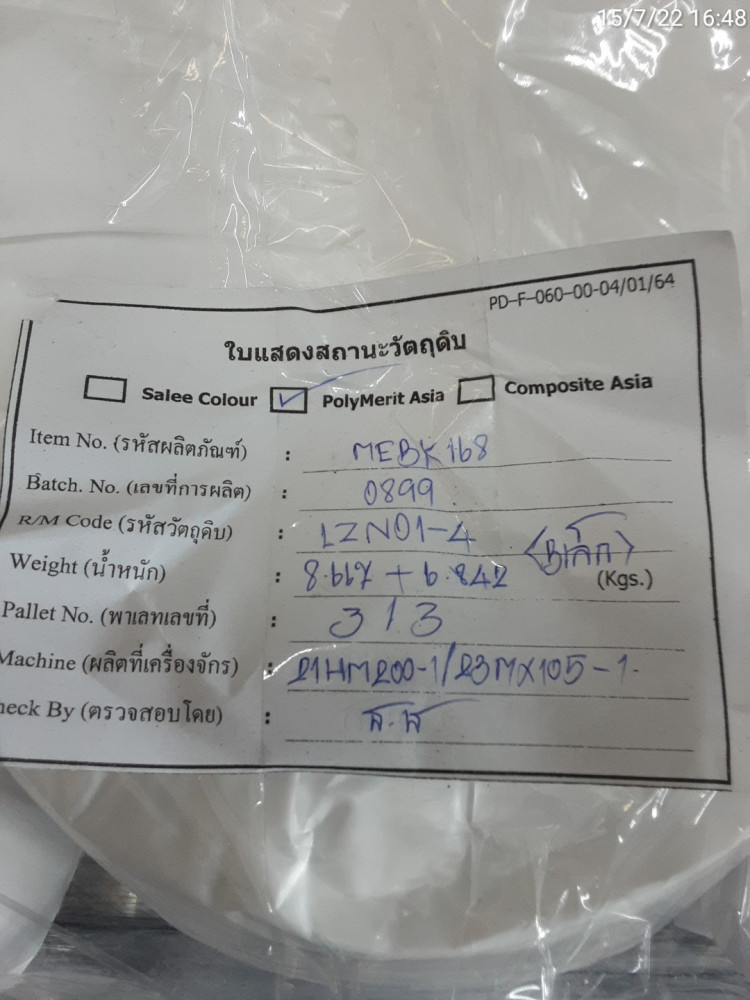 15/7/22 16:48
PD-F-060-00-04/01/64
ใบแสดงสถานะวัตถุดิบ
Salee Colour PolyMerit Asia Composite Asia
Item No. (รหัสผลิตภัณฑ์) : MEBK168
Batch. No. (เลขที่การผลิต) : 0899
R/M Code (รหัสวัตถุดิบ) : LZN01-4
Weight (น้ำหนัก) : 8.667 + 6.842 (Kgs.)
Pallet No. (พาเลทเลขที่) : 313
Machine (ผลิตที่เครื่องจักร) : 21HM200-1/23MX105-1
heck By (ตรวจสอบโดย) :